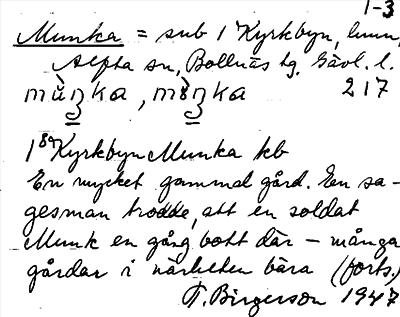 1-3
Munka = sub 1 Kyrkbyn, hmn,
Alfta sn, Bollnäs tg. Gävl. l.
mùŋka, mòŋka 217
1⁸⁹ Kyrkbyn Munka kb
En mycket gammal gård. En sa-
gesman trodde, att en soldat
Munk en gång bott där – många
gårdar i närheten bära (forts.)
T. Birgerson 1947